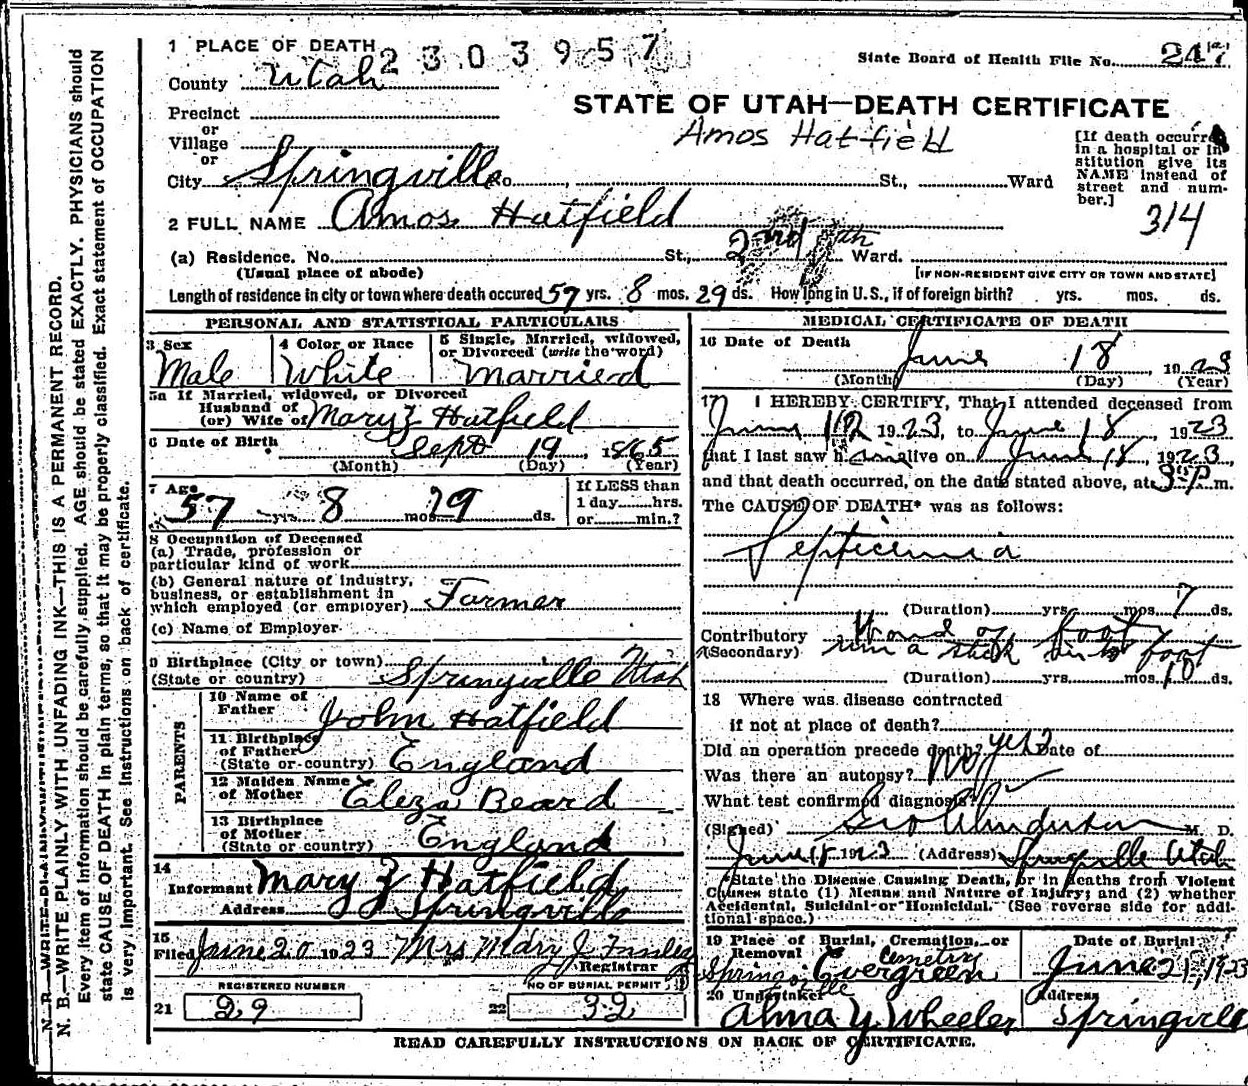 1 PLACE OF DEATH 2303957
State Board of Health File No. 247
County Utah
STATE OF UTAH—DEATH CERTIFICATE
Precinct
or
Amos Hatfield
Village
or
City Springville No. , St., Ward
[If death occurred in a hospital or institution give its NAME instead of street and number.]
314
2 FULL NAME Amos Hatfield
(a) Residence. No. St., 2nd Ward.
(Usual place of abode) [IF NON-RESIDENT GIVE CITY OR TOWN AND STATE]
Length of residence in city or town where death occured 57 yrs. 8 mos. 29 ds. How long in U.S., if of foreign birth? yrs. mos. ds.
PERSONAL AND STATISTICAL PARTICULARS
3 Sex
Male
4 Color or Race
White
5 Single, Married, widowed,
or Divorced (write the word)
Married
5a If Married, widowed, or Divorced
Husband of
(or) Wife of Mary Z Hatfield
6 Date of Birth Sept 19, 1865
(Month) (Day) (Year)
7 Age
57 yrs 8 mos 29 ds.
If LESS than
1 day hrs.
or min.?
8 Occupation of Deceased
(a) Trade, profession or
particular kind of work
(b) General nature of industry,
business, or establishment in
which employed (or employer) Farmer
(c) Name of Employer
9 Birthplace (City or town)
(State or country) Springville Utah
PARENTS
10 Name of
Father John Hatfield
11 Birthplace
of Father
(State or country) England
12 Maiden Name
of Mother Eleza Beard
13 Birthplace
of Mother
(State or country) England
14
Informant Mary Z Hatfield
Address Springville
15
Filed June 20 1923 Mrs Mary J
Registrar
REGISTERED NUMBER
21 29
NO OF BURIAL PERMIT
22 32
MEDICAL CERTIFICATE OF DEATH
16 Date of Death June 18, 1923
(Month) (Day) (Year)
17 I HEREBY CERTIFY, That I attended deceased from
June 12 1923, to June 18, 1923
that I last saw him alive on June 18, 1923,
and that death occurred, on the date stated above, at 3 p m.
The CAUSE OF DEATH* was as follows:
Septicemia
(Duration) yrs mos 7 ds.
Contributory of foot
(Secondary) run a stick into foot
(Duration) yrs mos 10 ds.
18 Where was disease contracted
if not at place of death?
Did an operation precede death? yes Date of
Was there an autopsy? No
What test confirmed diagnosis?
(Signed) Geo Anderson M. D.
June 18 1923 (Address) Springville Utah
*State the Disease Causing Death, or in deaths from Violent
Causes state (1) Means and Nature of Injury; and (2) whether
Accidental, Suicidal or Homicidal. (See reverse side for addi-
tional space.)
19 Place of Burial, Cremation, or
Removal Cemetry
Springville Evergreen
Date of Burial
June 21, 1923
20 Undertaker
Alma Y. Wheeler
Address
Springville
READ CAREFULLY INSTRUCTIONS ON BACK OF CERTIFICATE.
N. B.—WRITE PLAINLY WITH UNFADING INK—THIS IS A PERMANENT RECORD.
Every item of information should be carefully supplied. AGE should be stated EXACTLY. PHYSICIANS should
state CAUSE OF DEATH in plain terms, so that it may be properly classified. Exact statement of OCCUPATION
is very important. See instructions on back of certificate.